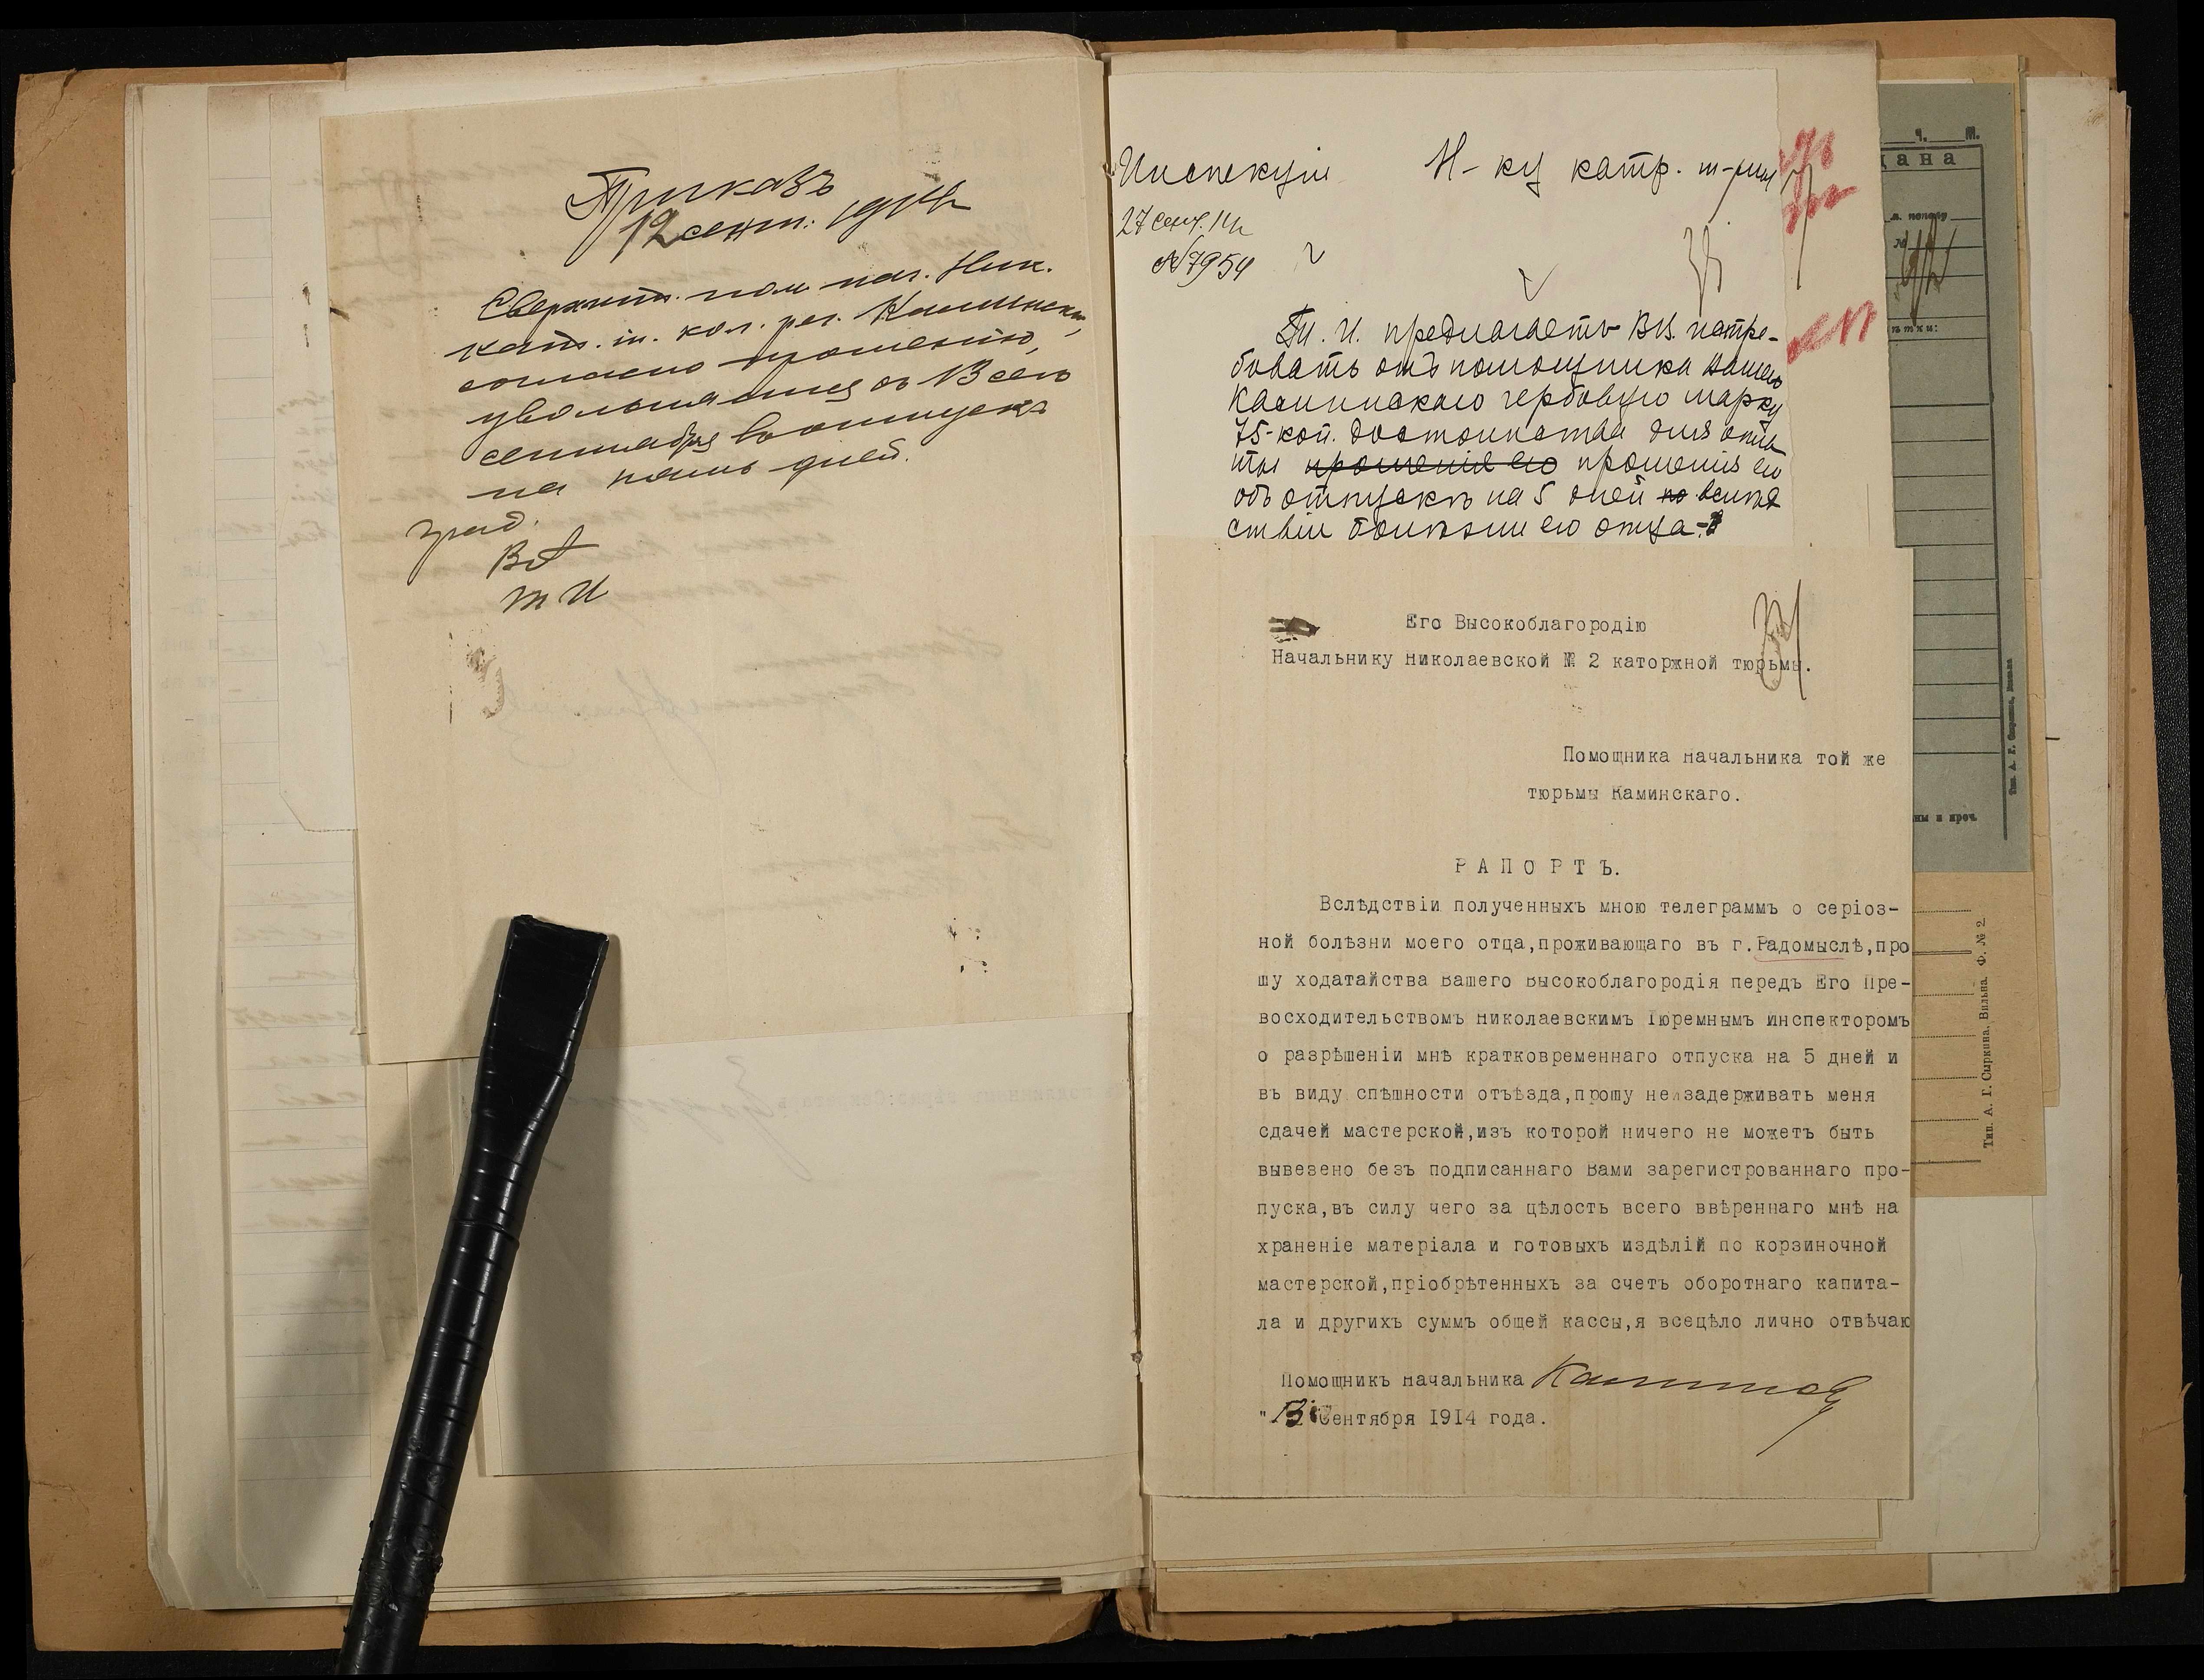 Приказъ
12 сент. 1914 г.
Сверхшт. пом. нач. Ник.
кат. т. кол. рег. Каминскій,
согласно прошенію,
увольняется съ 13 сего
сентября въ отпускъ
на пять дней.
ВД
ТИ
Инспекція
Н-ку катр. т-рмы
27 Сент. 14 г.
№ 7954
Т. И. предлагаетъ ВВ. истре-
бовать отъ помощника Вашего
Каминскаго гербовую марку
75-коп. достоинства для опла
ты прошенія его прошенія его
объ отпускѣ на 5 дней по вслѣд
ствіи болѣзни его отца.
Его Высокоблагородію
Начальнику Николаевской № 2 каторжной тюрьмы.
Помощника Начальника той же
тюрьмы Каминскаго.
РАПОРТЪ.
Вслѣдствіи полученныхъ мною телеграммъ о серіоз-
ной болѣзни моего отца,проживающаго въ г.Радомыслѣ,про
шу ходатайства Вашего Высокоблагородія передъ Его Пре-
восходительствомъ Николаевскимъ Тюремнымъ Инспекторомъ
о разрѣшеніи мнѣ кратковременнаго отпуска на 5 дней и
въ виду спѣшности отъѣзда,прошу не задерживать меня
сдачей мастерской,изъ которой ничего не можетъ быть
вывезено безъ подписаннаго Вами зарегистрованнаго про-
пуска,въ силу чего за цѣлость всего ввѣреннаго мнѣ на
храненіе матеріала и готовыхъ издѣлій по корзиночной
мастерской,пріобрѣтенныхъ за счетъ оборотнаго капита-
ла и другихъ суммъ общей кассы,я всецѣло лично отвѣчаю
Помощникъ Начальника Каминскій
"13 Сентября 1914 года.
ч. М.
дана
№
Тип. А. Г. Сыркина, Вильна. Ф. № 2.